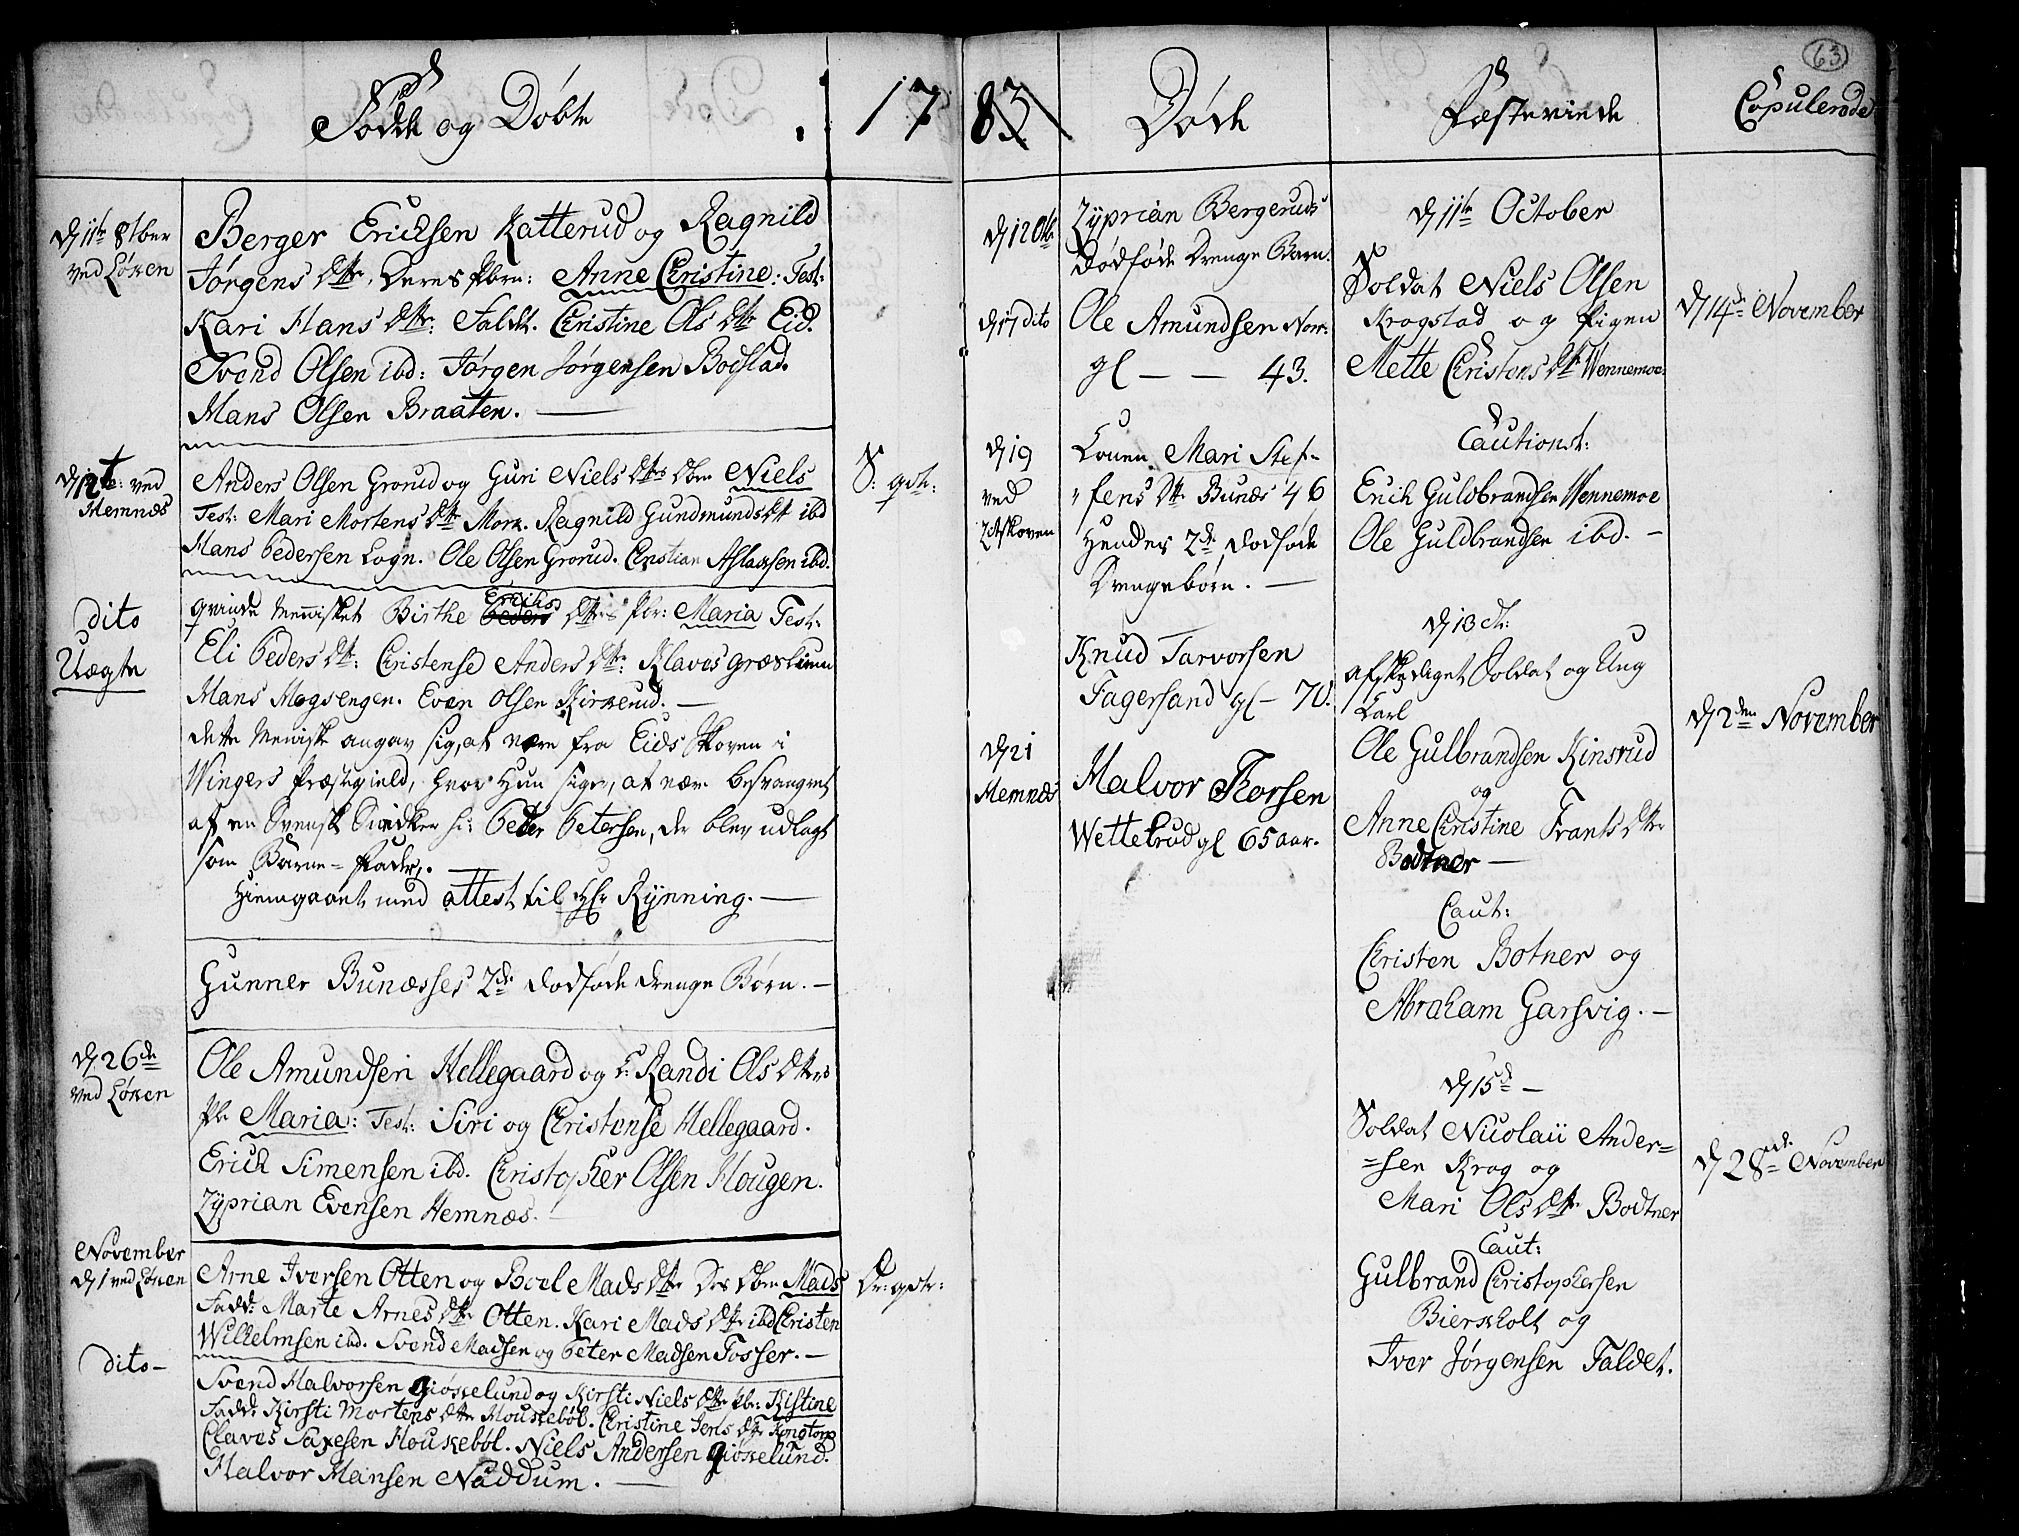 Födde og Döbte
1783
Døde
Fæstevinde
Copulerede
63
D. 11te 8tber
ved Löken
Berger Ericksen Katterud og Ragnild
Jørgens Dtr. Deres Pbrn: Anne Christine: Test:
Kari Hans Dtr: Faldt. Christine Ols Dtr Eid.
Svend Olsen ibd: Jørgen Jørgensen Bodstad.
Hans Olsen Braaten. —
D. 12te: ved
Hemnæs
Anders Olsen Grorud og Guri Niels Dtrs Dbn Niels
Test: Mari Mortens Dtr Mork. Ragnild Gundmunds Dtr ibd
Hans Pedersen Logn. Ole Olsen Grorud. Christian Aslaksen ibd.
S: gdt:
dito
Uægte
Qvinde Mennisket Birthe Peders Ericks Dtrs Pbr: Maria Test:
Eli Peders Dtr: Christense Anders Dtr: Klaves Græslien
Hans Hogsengen. Even Olsen Kirkerud. —
dette Meniske angav sig, at være fra Eids Skoven i
Wingers Præstegield, hvor Hun siger, at være besvangret
af en Svensk Snedker h: Peder Petersen, der blev udlagt
som Barne-Fader.
Hiemgaaet med attest til Hr Rynning. —
Gunner Bunæsses 2de Dødføde Drenge Börn. —
D. 26de
ved Löken
Ole Amundsen Hellegaard og Randi Ols Dtrs
Pb Maria: Test: Siri og Christense Hellegaard.
Erick Simensen ibd. Christopher Olsen Hougen.
Zyprian Evensen Hemnæs.
November
D. 1 ved Löken
Arne Iversen Otten og Boel Mads Dtr Des Dbn Mads
Fadd: Marte Arnes Dtr Otten. Kari Mads Dtr ibd Christen
Wilhelmsen ibd. Svend Madsen og Peter Madsen Tosser. —
Dr: gdt:
dito —
Svend Halvorsen Giöskelund og Kirsti Niels Dtr Pbr: Kistine
Fadd: Kirsti Mortens Dtr Houskeböl. Christine Jens Dtr Kongtorp
Claves Saxesen Houskeböl. Niels Andersen Giöskelund.
Halvor Hansen Naddum. —
D. 12 Octb
Zyprian Bergeruds
Dödföde Drenge Barn.
D. 17 dito
Ole Amundsen Nor:
gl — — 43.
D. 19
ved
Konen Mari Stef-
fens Dtr Bunæs 46
Hendes 2de Dödföde
Drengebörn. —
Knud Tarvorsen
Fagersand gl — 70.
D. 21
Hemnæs
Halvor Thorsen
Wettebrud gl 65 aar.
D. 11te October
Soldat Niels Olsen
Krogstad og Pigen
Mette Christens Dtr Wennemoe
Cautionst:
Erich Guldbrandsen Wennemoe
Ole Guldbrandsen ibd. —
D. 13 dt:
Afskediget Soldat og Ung
Karl
Ole Gulbrandsen Kinsrud
og
Anne Christine Frants Dtr
Bodtner —
Caut:
Christen Botner og
Abraham Garsvig. —
D. 15d —
Soldat Nicolaii Ander=
=sen Krog og
Mari Ols Dtr Bodtner
Caut:
Gulbrand Christophersen
Bierkholt og
Iver Jørgensen Faldet.
D. 14d November
D. 2den November
D. 28nde November